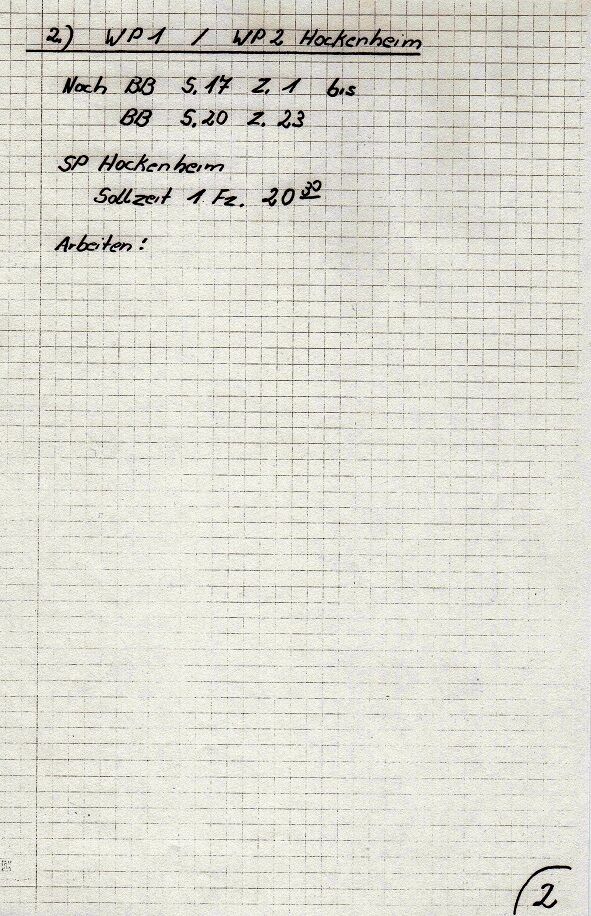 2.) WP1 / WP2 Hockenheim
Nach BB S.17 Z.1 bis
BB S.20 Z.23
SP Hockenheim
Sollzeit 1 Fz. 20³⁰
Arbeiten:
2